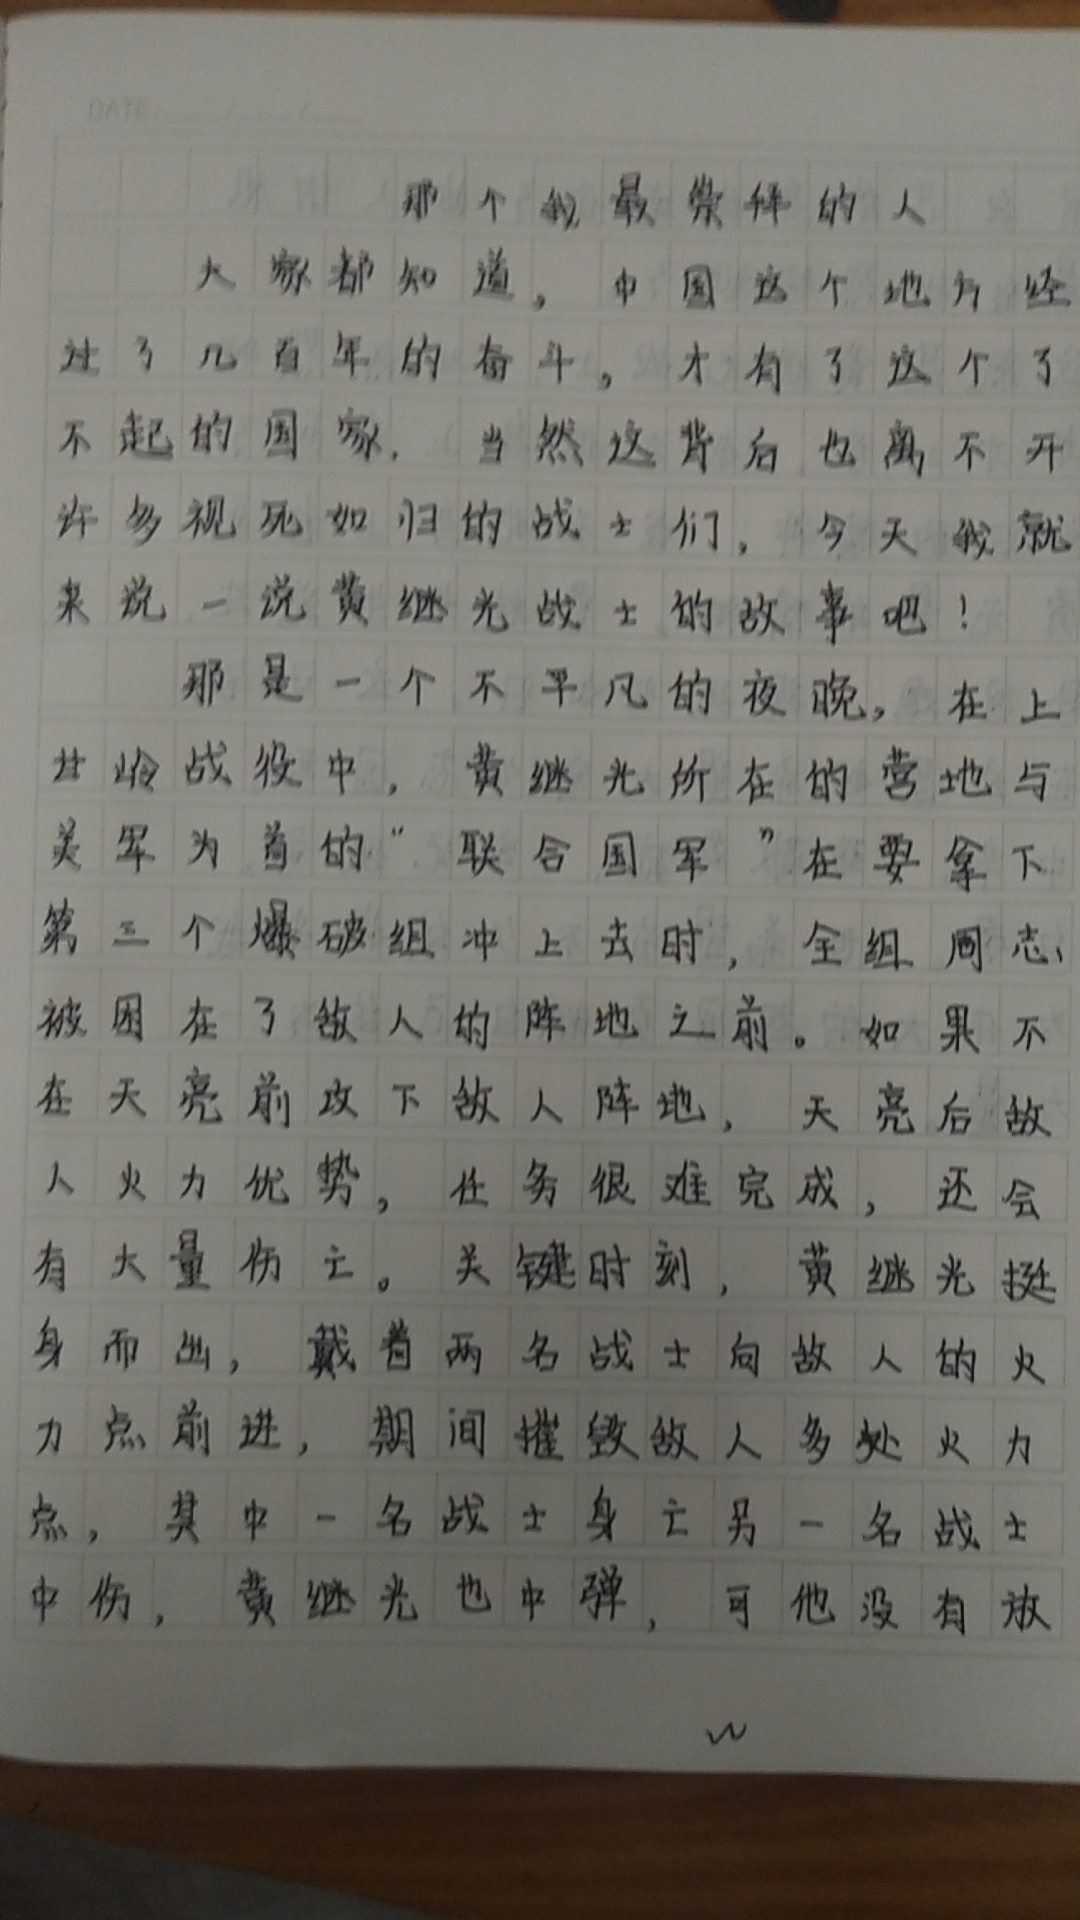 DATE
那个我最崇拜的人
大家都知道，中国这个地方经
过了几百年的奋斗，才有了这个了
不起的国家．当然这背后也离不开
许多视死如归的战士们，今天我就
来说一说黄继光战士的故事吧！
那是一个不平凡的夜晚，在上
甘岭战役中，黄继光所在的营地与
美军为首的“联合国军”在要拿下
第三个爆破组冲上去时，全组同志
被困在了敌人的阵地之前。如果不
在天亮前攻下敌人阵地，天亮后敌
人火力优势，任务很难完成，还会
有大量伤亡。关键时刻，黄继光挺
身而出，戴着两名战士向敌人的火
力点前进，期间摧毁敌人多处火力
点，其中一名战士身亡另一名战士
中伤，黄继光也中弹，可他没有放